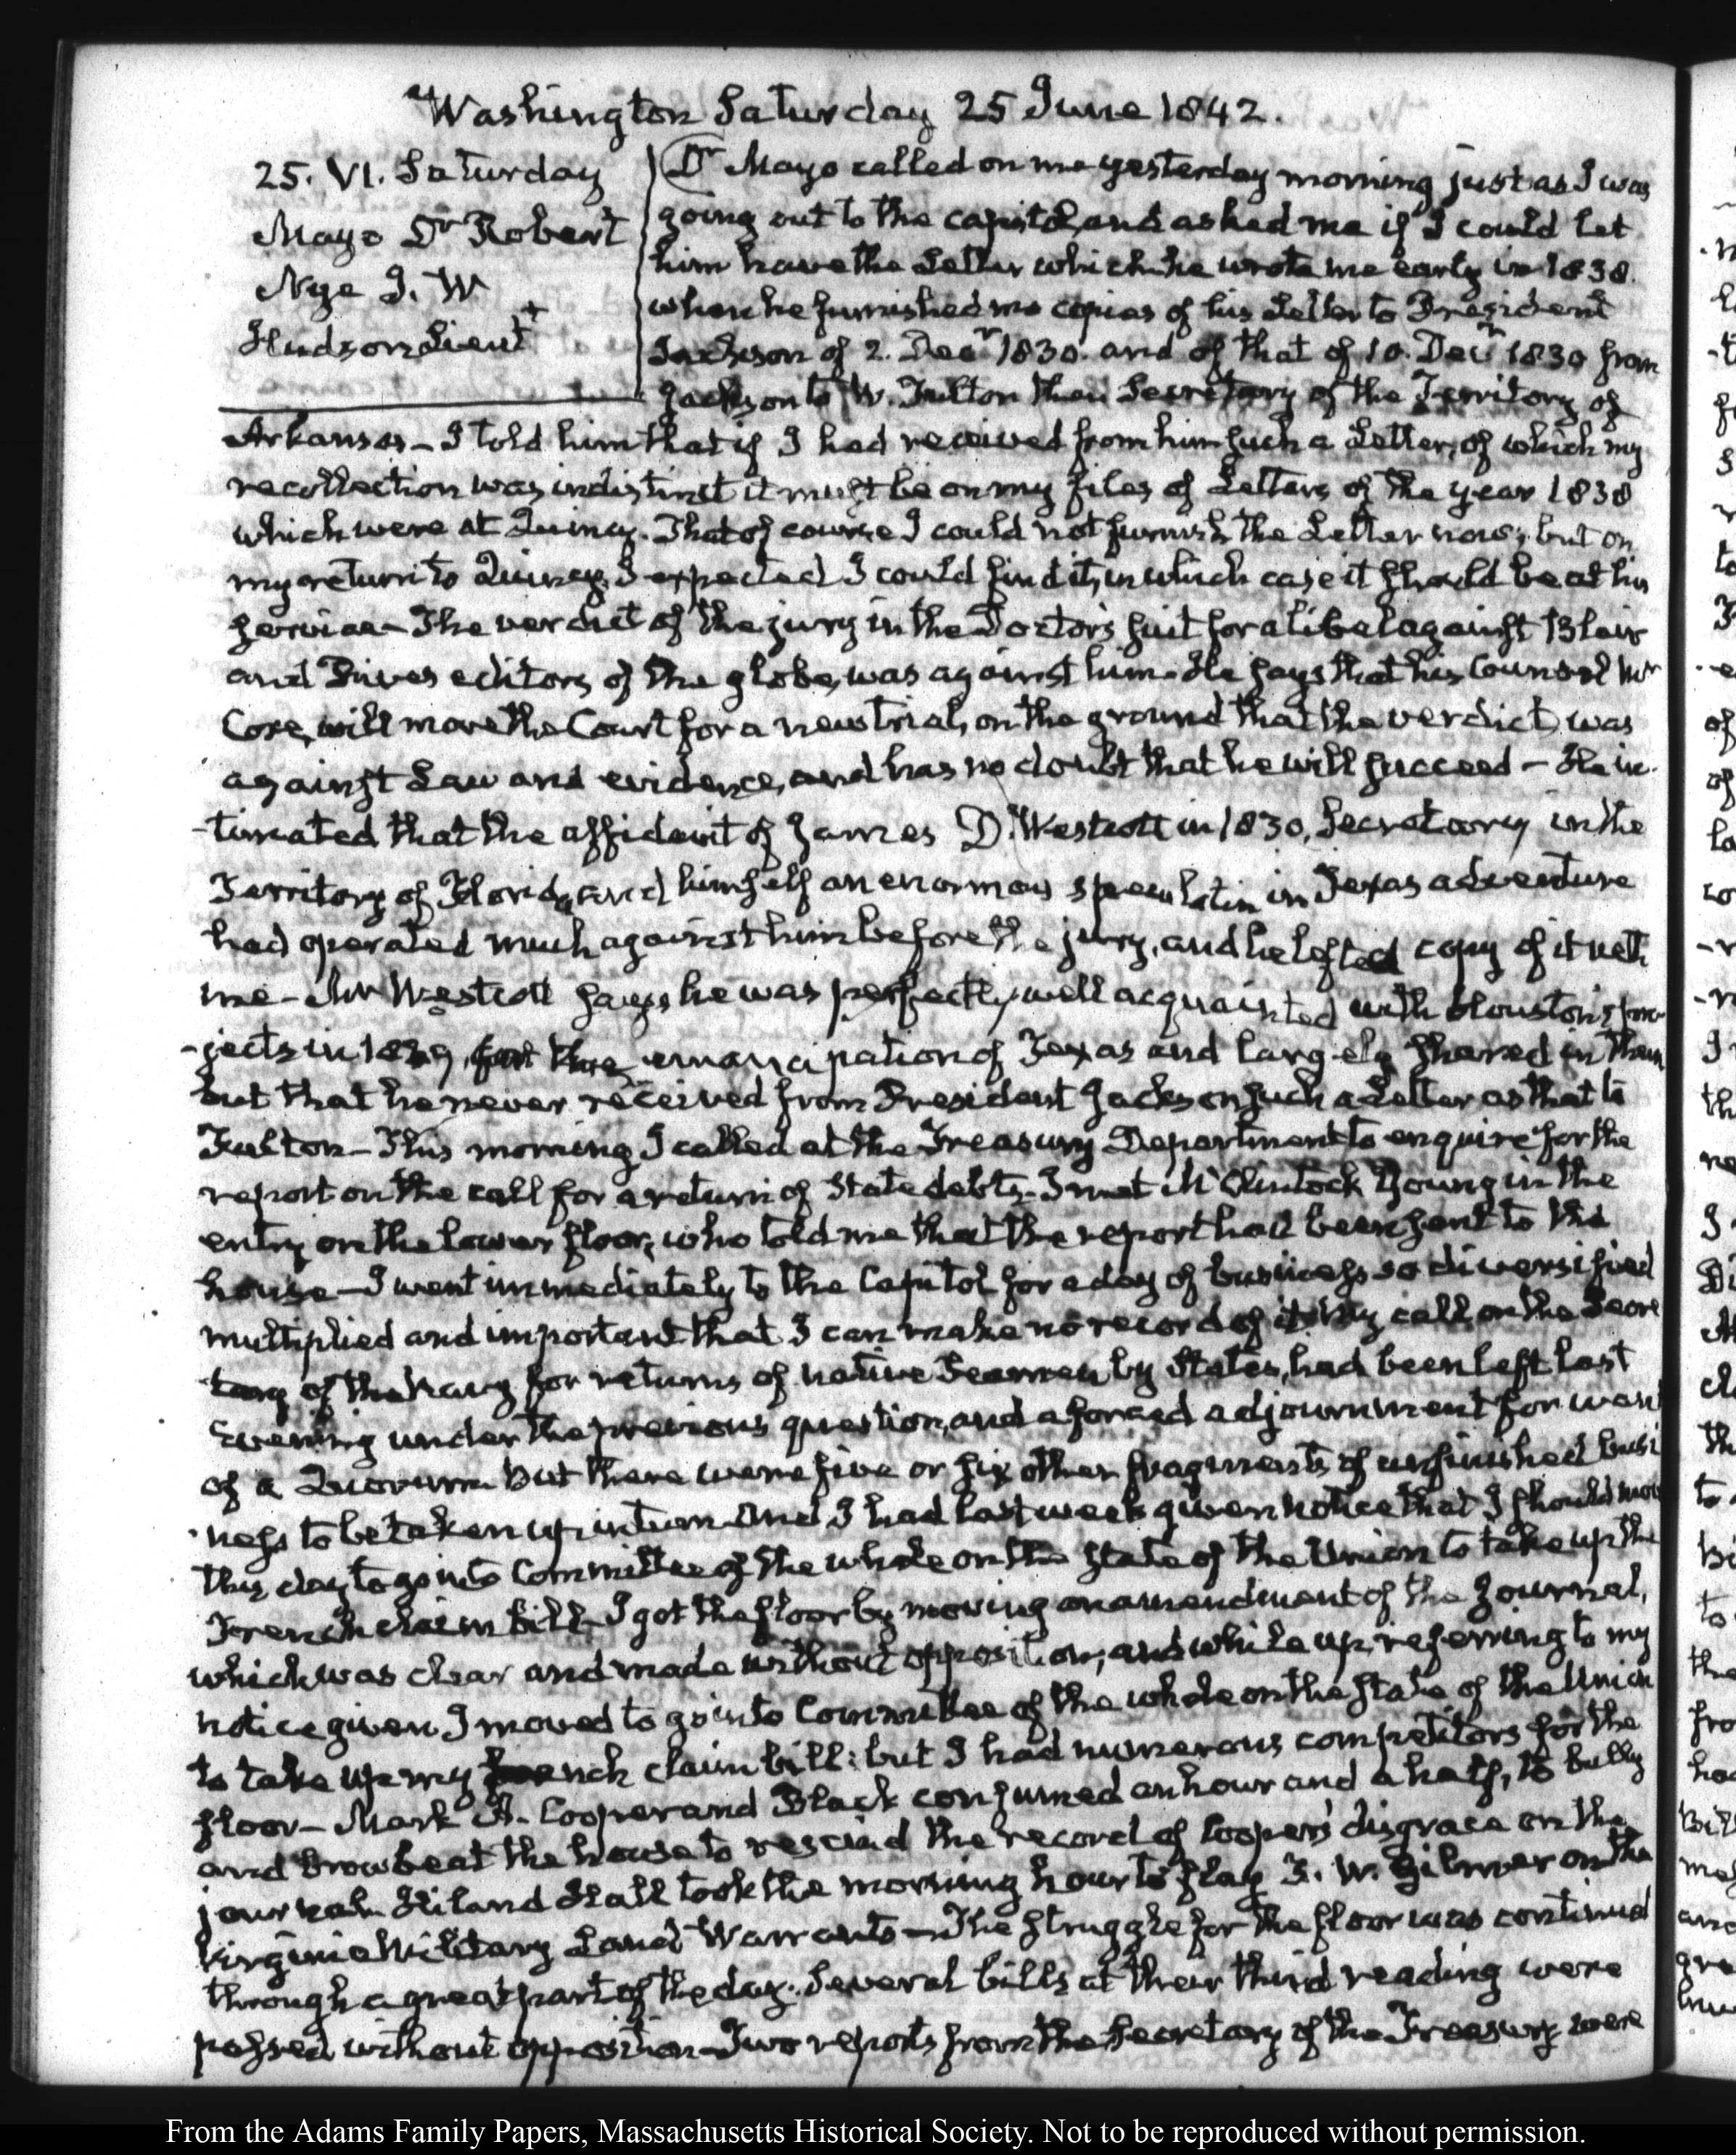 Washington Saturday 25 June 1842.
25. VI. Saturday
Mayo Dr Robert
Nye J. W
Hudson Lieut +
Dr Mayo called on me yesterday morning just as I was
going out to the capitol, and asked me if I could let
him have the Letter which he wrote me early in 1838.
when he furnished me copies of his Letter to President
Jackson of 2. Decr 1830. and of that of 10. Decr 1830 from
Jackson to W. Fulton then Secretary of the Territory of
Arkansas – I told him that if I had received from him such a Letter, of which my
recollection was indistinct it must be on my files of Letters of the year 1838
which were at Quincy. That of course I could not furnish the Letter now; but on
my return to Quincy, I expected I could find it, in which case it should be at his
service – The verdict of the jury in the Doctor's suit for a libel against Blair
and Rives editors of the globe, was against him. He says that his Counsel Mr
Coxe, will move the Court for a new trial, on the ground that the verdict, was
against Law and evidence, and has no doubt that he will succeed – He in
-timated that the affidavit of James D. Westcott in 1830, Secretary in the
Territory of Florida, and himself an enormous speculator in Texas adventure
had operated much against him before the jury, and he left a copy of it with
me – Mr Westcott says he was perfectly well acquainted with Houston's pro
-jects in 1829, for the emancipation of Texas and largely shared in them
but that he never received from President Jackson such a Letter as that to
Fulton – This morning I called at the Treasury Department to enquire for the
report on the call for a return of State debts. I met McClintock Young in the
entry on the lower floor, who told me that the report had been sent to the
house – I went immediately to the Capitol for a day of business so diversified
multiplied and important that I can make no record of it. My call on the Secre
-tary of the Navy for returns of native Seamen by States, had been left last
Evening under the previous question, and a forced adjournment for want
of a Quorum. But there were five or six other fragments of unfinished busi
-ness to be taken up in turn. And I had last week given notice that I should move
this day to go into Committee of the whole on the state of the Union to take up the
French claim bill – I got the floor by moving an amendment of the Journal,
which was clear and made without opposition; and while up, referring to my
notice given I moved to go into Committee of the whole on the state of the Union
to take up my French claim bill: but I had numerous competitors for the
floor – Mark A. Cooper and Black consumed an hour and a half, to bully
and browbeat the house to rescind the record of Cooper's disgrace on the
journal. Hiland Hall took the morning hour to flay T. W. Gilmer on the
Virginia Military Land Warrants – The struggle for the floor was continued
through a great part of the day. Several bills at their third reading were
passed without opposition – Two reports from the Secretary of the Treasury were
From the Adams Family Papers, Massachusetts Historical Society. Not to be reproduced without permission.